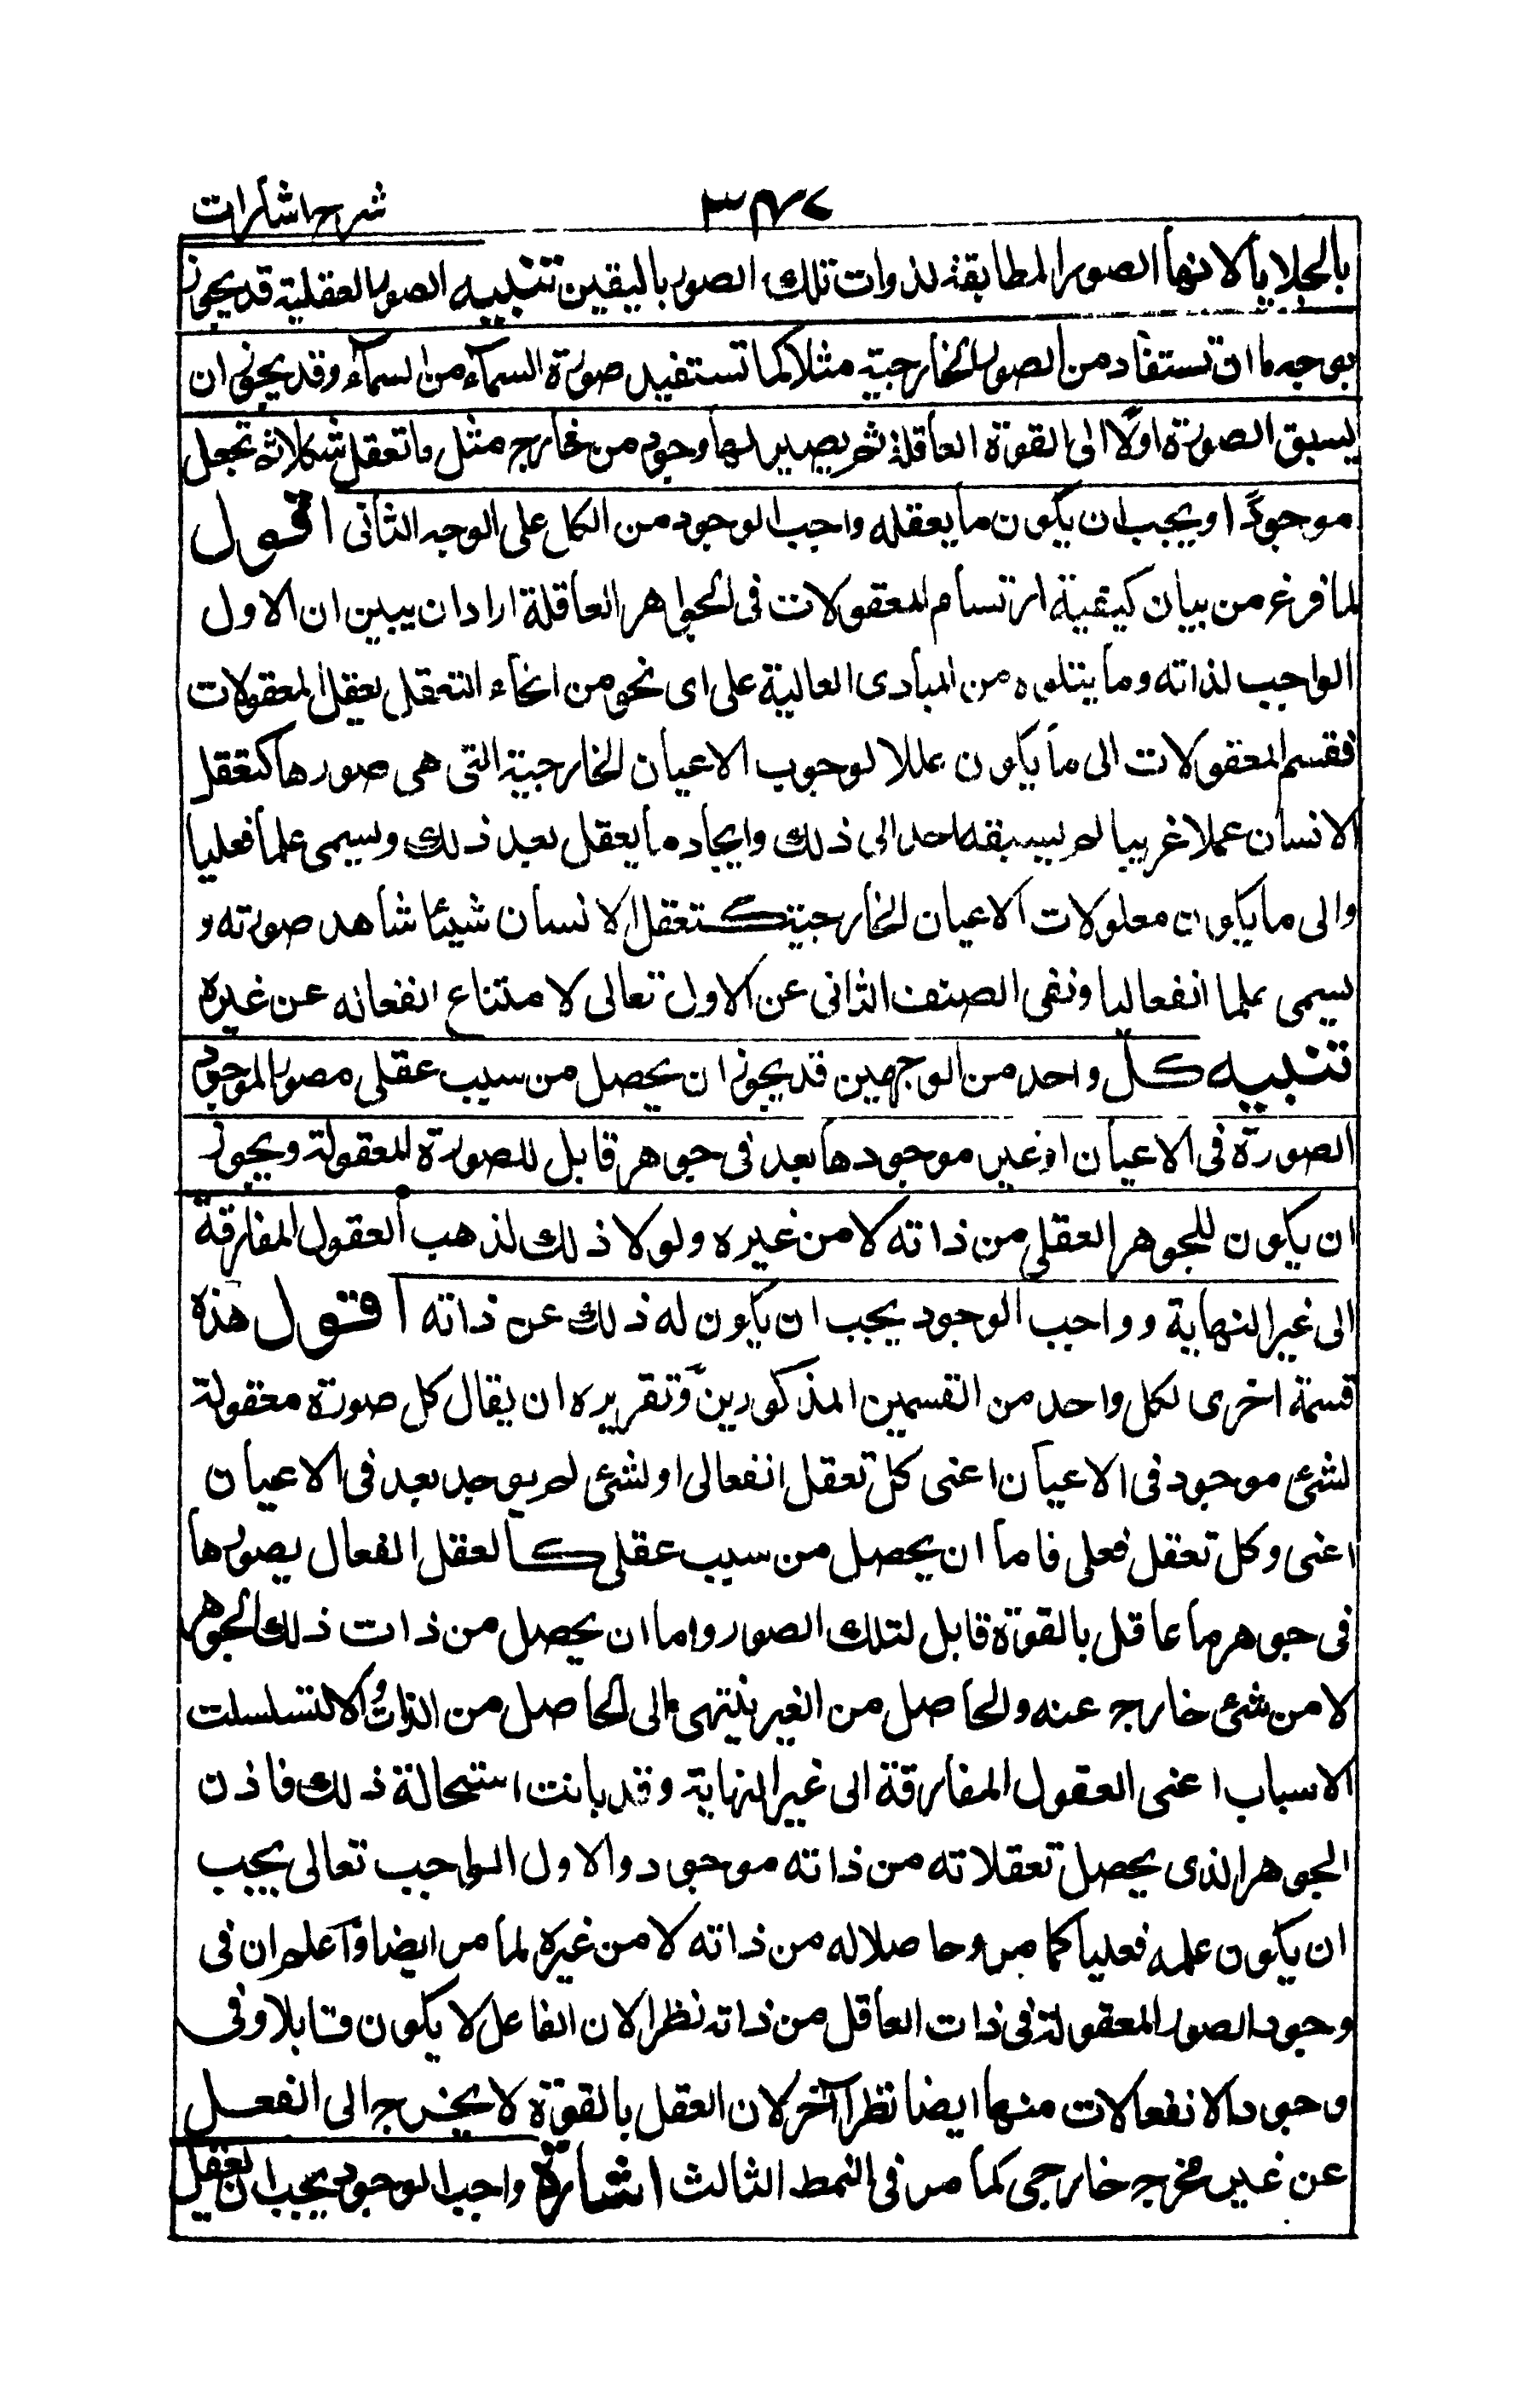 شرح اشارات ٣٤٧
بالجلايا لانها الصور المطابقة لذوات تلك الصور باليقين تنبيه الصور العقلية قد يجوز
بوجه ما ان تستفاد من الصور الخارجية مثلا كما تستفيد صورة السمآء من السمآء وقد يجوز ان
يسبق الصورة اولا الى القوة العاقلة ثم يصير لها وجود من خارج مثل ما تعقل شكلا ثم تجعل
موجودا ويجب ان يكون ما يعقله واجب الوجود من الكل على الوجه الثانى اقول
لما فرغ من بيان كيفية ارتسام المعقولات فى الجواهر العاقلة اراد ان يبين ان الاول
الواجب لذاته وما يتلوه من المبادى العالية على اى نحو من انحاء التعقل يعقل المعقولات
فقسم المعقولات الى ما يكون عللا لوجوب الاعيان الخارجية التى هى صورها كتعقل
الانسان عملا غريبا لم يسبقه احد الى ذلك وايجاده ما يعقل بعد ذلك ويسمى علما فعليا
والى ما يكون معلولات الاعيان الخارجية كتعقل الانسان شيئا شاهد صورته و
يسمى علما انفعاليا ونفى الصنف الثانى عن الاول تعالى لامتناع انفعاله عن غيره
تنبيه كل واحد من الوجهين قد يجوز ان يحصل من سبب عقلى مصور لموجود
الصورة فى الاعيان او غير موجودها بعد فى جوهر قابل للصورة المعقولة ويجوز
ان يكون للجوهر العقلى من ذاته لا من غيره ولولا ذلك لذهب العقول المفارقة
الى غير النهاية وواجب الوجود يجب ان يكون له ذلك عن ذاته اقول هذه
قسمة اخرى لكل واحد من القسمين المذكورين وتقريره ان يقال كل صورة معقولة
لشئ موجود فى الاعيان اعنى كل تعقل انفعالى او لشئ لم يوجد بعد فى الاعيان
اعنى وكل تعقل فعلى فاما ان يحصل من سبب عقلى كالعقل الفعال يصورها
فى جوهر ما عاقل بالقوة قابل لتلك الصور واما ان يحصل من ذات ذلك الجوهر
لا من شئ خارج عنه والحاصل من الغير ينتهى الى الحاصل من الذات والا لتسلسلت
الاسباب اعنى العقول المفارقة الى غير النهاية وقد بانت استحالة ذلك فاذن
الجوهر الذى يحصل تعقلاته من ذاته موجود والاول الواجب تعالى يجب
ان يكون علمه فعليا كما مر وحاصلا له من ذاته لا من غيره لما مر ايضا وآعلم ان فى
وجود الصور المعقولة فى ذات العاقل من ذاته نظرا لان الفاعل لا يكون قابلا وفى
وجود الانفعالات منها ايضا نظرا آخر لان العقل بالقوة لا يخرج الى الفعل
عن غير مخرج خارجى كما مر فى النمط الثالث اشارة واجب الوجود يجب ان يعقل